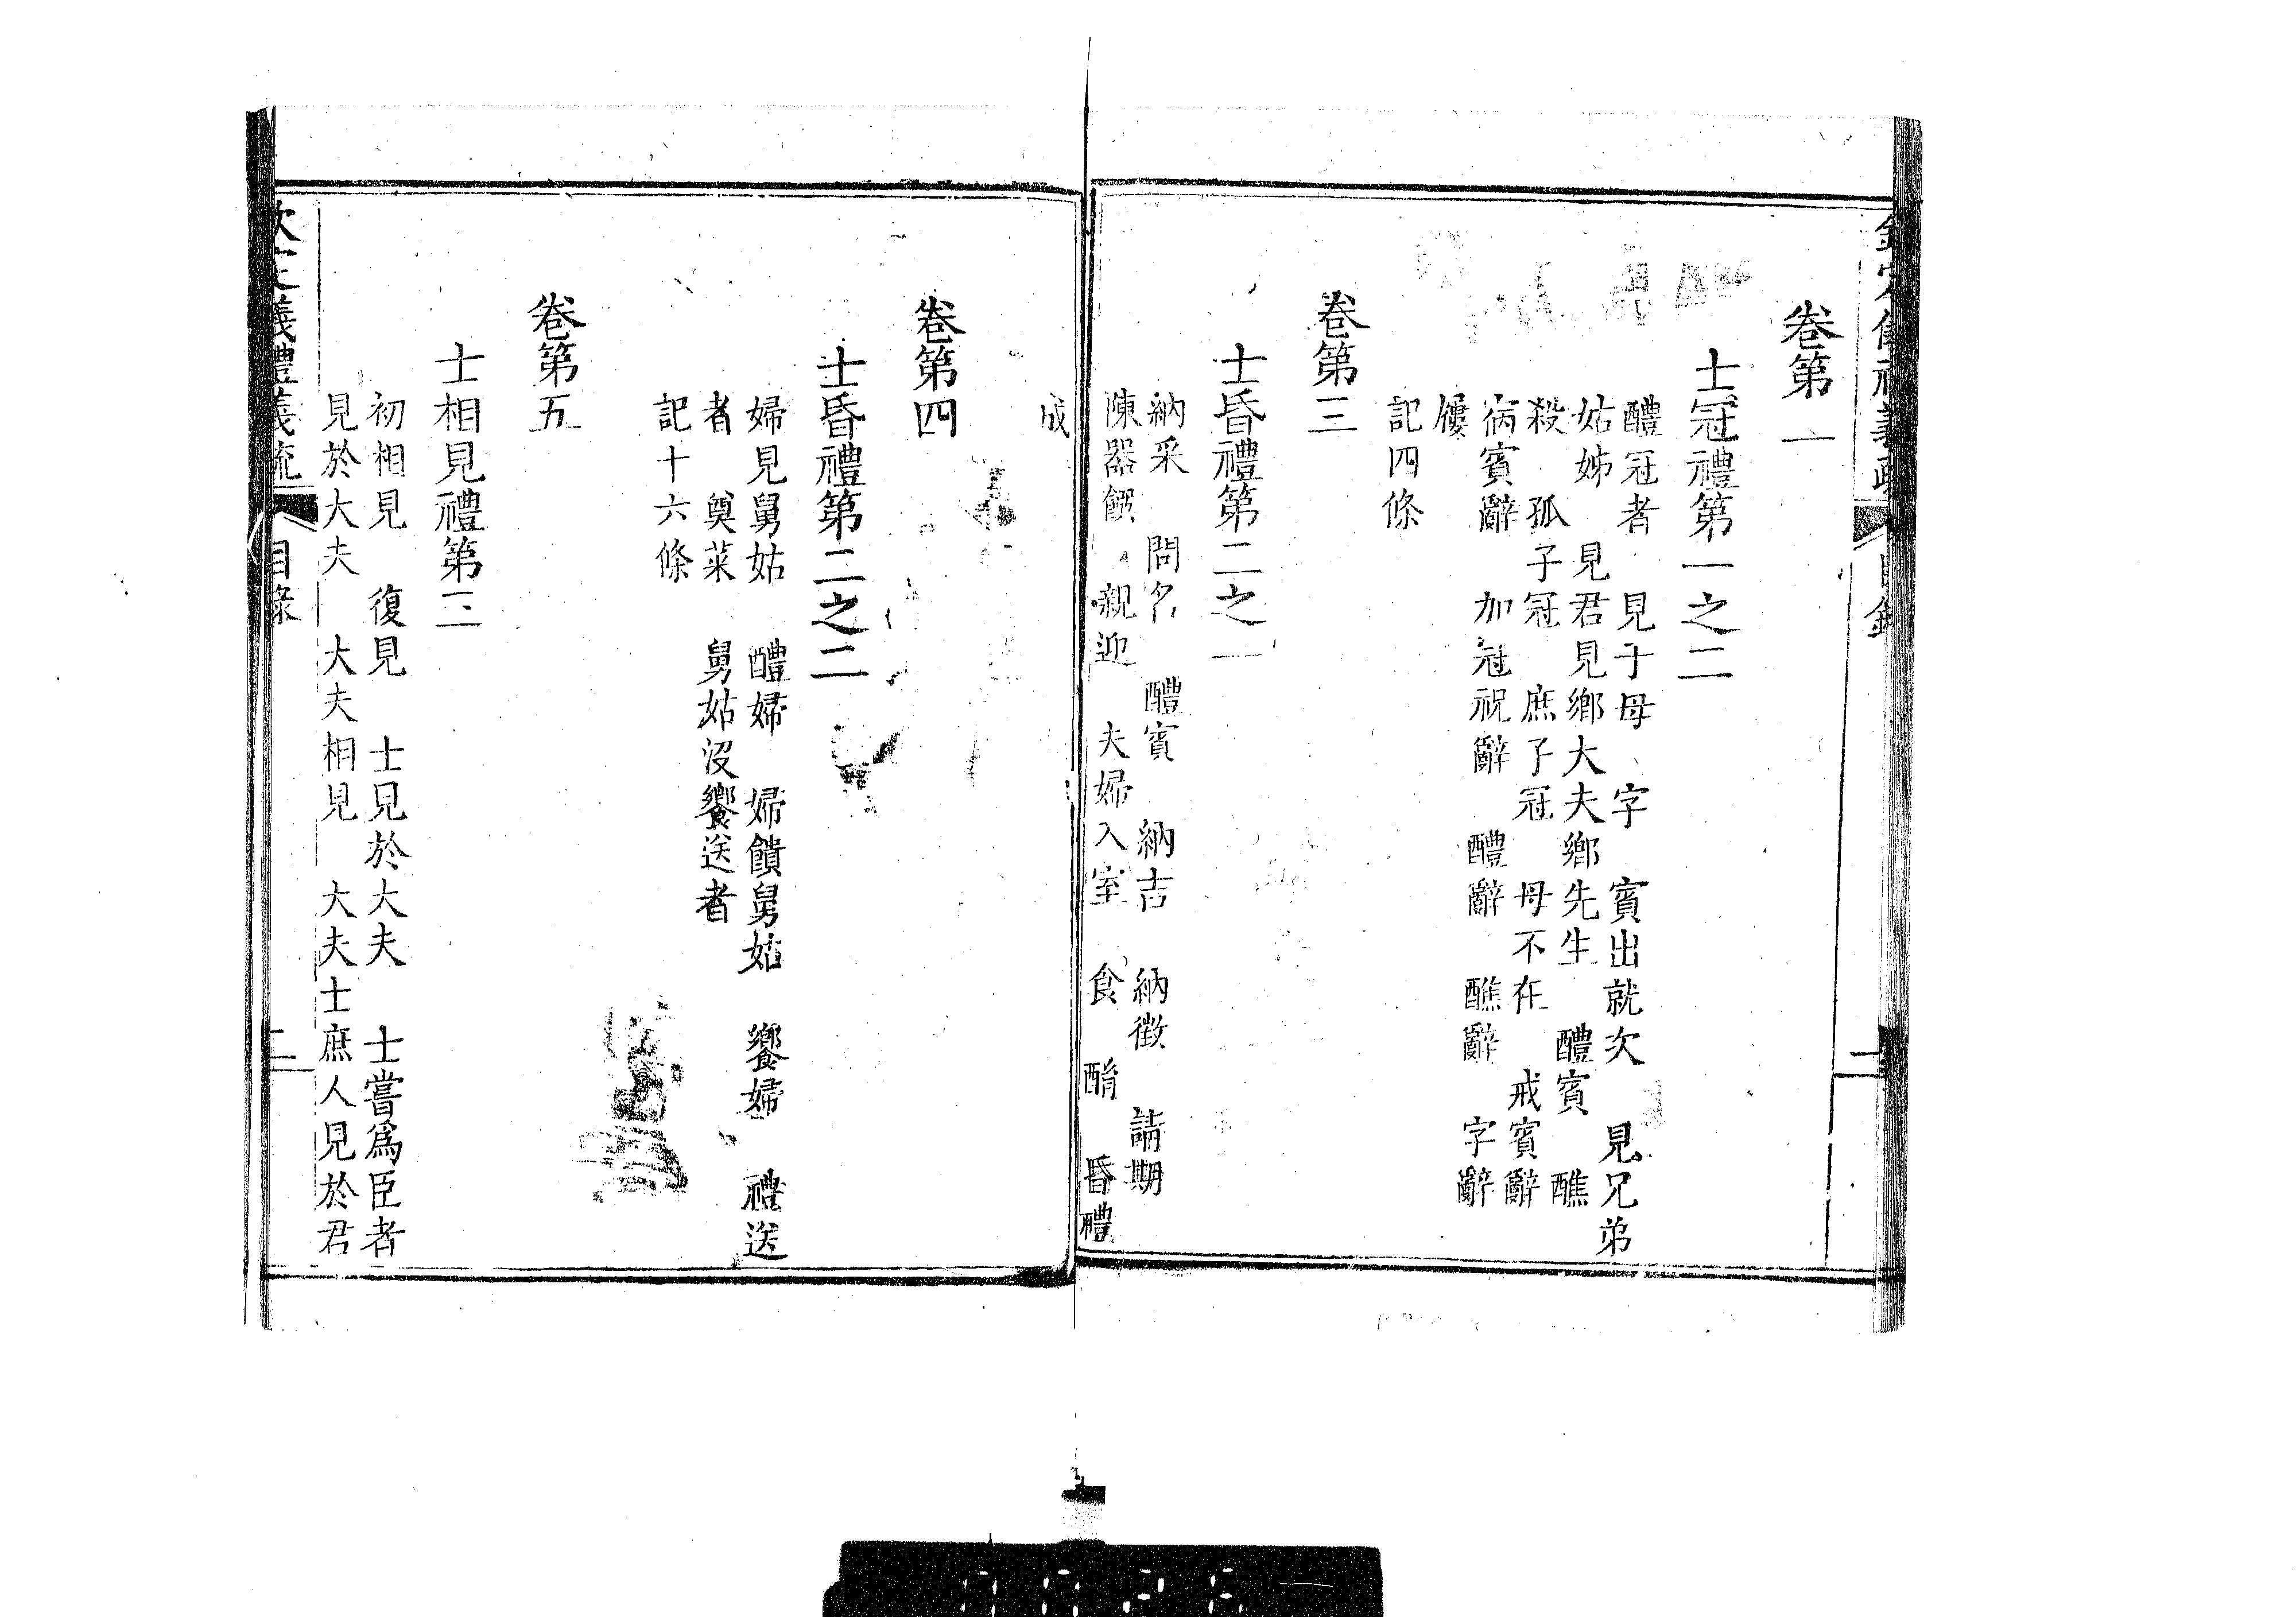 卷第一
士冠禮第一之二
醴冠者 見于母 字 賓出就次 見兄弟
姑姊 見君見鄉大夫鄉先生 醴賓 醮
殺 孤子冠 庶子冠 母不在 戒賓辭
病賓辭 加冠祝辭 醴辭 醮辭 字辭
屨
記四條
卷第三
士昏禮第二之一
納采 問名 醴賓 納吉 納徵 請期
陳器饌 親迎 夫婦入室 食 酳 昏禮
成
卷第四
士昏禮第二之二
婦見舅姑 醴婦 婦饋舅姑 饗婦 禮送
者 奠菜 舅姑沒饗送者
記十六條
卷第五
士相見禮第三
初相見 復見 士見於大夫 士嘗爲臣者
見於大夫 大夫相見 大夫士庶人見於君
儀禮義疏 目錄 二